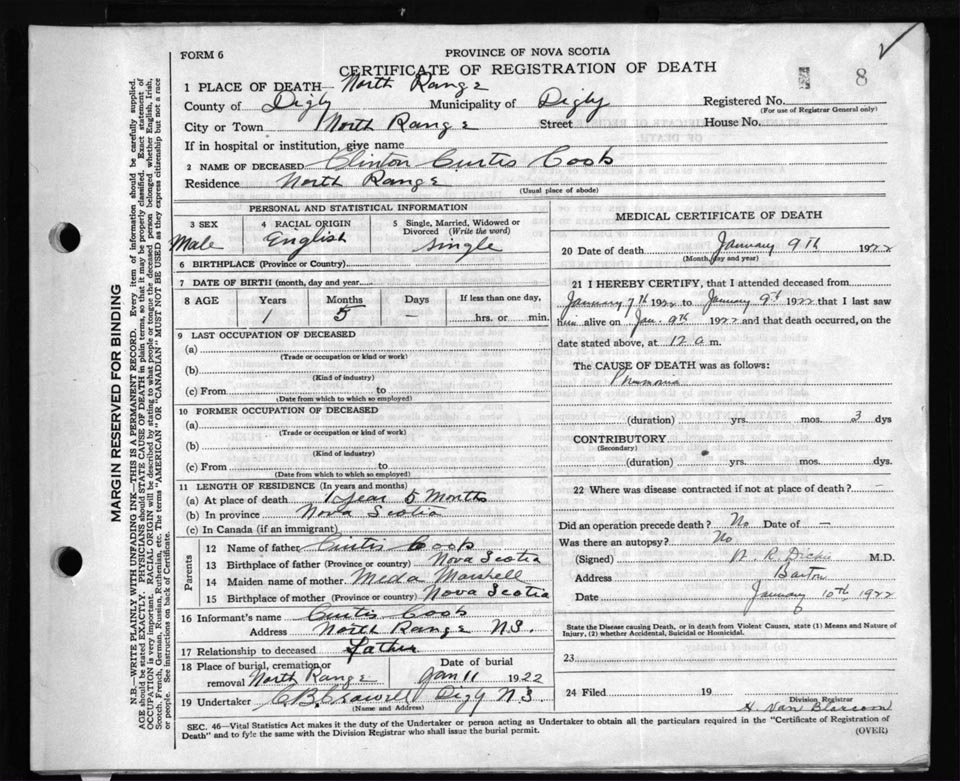 FORM 6
PROVINCE OF NOVA SCOTIA
CERTIFICATE OF REGISTRATION OF DEATH
8
1 PLACE OF DEATH— North Range
County of Digby Municipality of Digby Registered No.
(For use of Registrar General only)
City or Town North Range Street House No.
If in hospital or institution, give name
2 NAME OF DECEASED Clinton Curtis Cook
Residence North Range
(Usual place of abode)
PERSONAL AND STATISTICAL INFORMATION
3 SEX 4 RACIAL ORIGIN 5 Single, Married, Widowed or Divorced (Write the word)
Male English Single
6 BIRTHPLACE (Province or Country)
7 DATE OF BIRTH (month, day and year)
8 AGE Years Months Days If less than one day,
1 5 — hrs. or min.
9 LAST OCCUPATION OF DECEASED
(a)
(Trade or occupation or kind or work)
(b)
(Kind of industry)
(c) From to
(Date from which to which so employed)
10 FORMER OCCUPATION OF DECEASED
(a)
(Trade or occupation or kind of work)
(b)
(Kind of industry)
(c) From to
(Date from which to which so employed)
11 LENGTH OF RESIDENCE (In years and months)
(a) At place of death 1 Year 5 Months
(b) In province Nova Scotia
(c) In Canada (if an immigrant)
Parents
12 Name of father Curtis Cook
13 Birthplace of father (Province or country) Nova Scotia
14 Maiden name of mother Meda Marshell
15 Birthplace of mother (Province or country) Nova Scotia
16 Informant's name Curtis Cook
Address North Range N.S.
17 Relationship to deceased Father
18 Place of burial, cremation or removal North Range Date of burial Jan 11 1922
19 Undertaker Digby N S
(Name and Address)
MEDICAL CERTIFICATE OF DEATH
20 Date of death January 9th 1922
(Month, day and year)
21 I HEREBY CERTIFY, that I attended deceased from
January 7th 1922 to January 9th 1922 that I last saw
him alive on Jan. 9th 1922 and that death occurred, on the
date stated above, at 12 a m.
The CAUSE OF DEATH was as follows:
Pneumonia
(duration) yrs. mos. 3 dys
CONTRIBUTORY
(Secondary)
(duration) yrs. mos. dys.
22 Where was disease contracted if not at place of death? —
Did an operation precede death? No Date of —
Was there an autopsy? No
(Signed) R. Dickie M.D.
Address Barton
Date January 10th 1922
State the Disease causing Death, or in death from Violent Causes, state (1) Means and Nature of
Injury, (2) whether Accidental, Suicidal or Homicidal.
23
24 Filed 19
Division Registrar
H. Van Blarcom
SEC. 46—Vital Statistics Act makes it the duty of the Undertaker or person acting as Undertaker to obtain all the particulars required in the "Certificate of Registration of
Death" and to fyle the same with the Division Registrar who shall issue the burial permit.
(OVER)
MARGIN RESERVED FOR BINDING
N.B.—WRITE PLAINLY WITH UNFADING INK—THIS IS A PERMANENT RECORD. Every item of information should be carefully supplied.
AGE should be stated EXACTLY. PHYSICIANS should STATE CAUSE OF DEATH in plain terms, so that it may be properly classified. Exact statement of
OCCUPATION is very important. RACIAL ORIGIN will be described by stating to what people or tongue the deceased person belonged whether English, Irish,
Scotch, French, German, Russian, Ruthenian, etc. The terms "AMERICAN" OR "CANADIAN" MUST NOT BE USED as they express citizenship but not a race
or people. See instructions on back of Certificate.